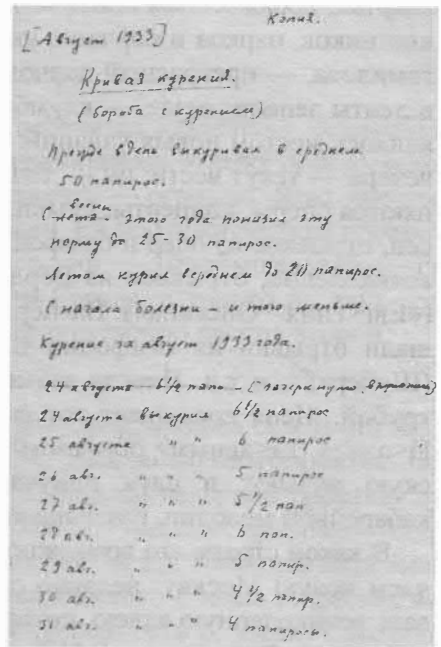 Копия.
[Август 1933]
Кривая курения.
(борьба с курением)
Прежде в день выкуривал в среднем
50 папирос.
весны
С лета. этого года понизил эту
норму до 25-30 папирос.
Летом курил в среднем до 20 папирос.
С начала болезни - и того меньше.
Курение за август 1933 года.
24 августа - 6 1/2 папи - (зачеркнуто
24 августа выкурил 6 1/2 папирос
25 августа " " 6 папирос
26 авг. " " 5 папирос
27 авг. " " " 5 1/2 пап
28 авг. " " " 6 пап.
29 авг. " " " 5 папир.
30 авг. " " " 4 1/2 папир.
31 авг. " " " 4 папиросы.